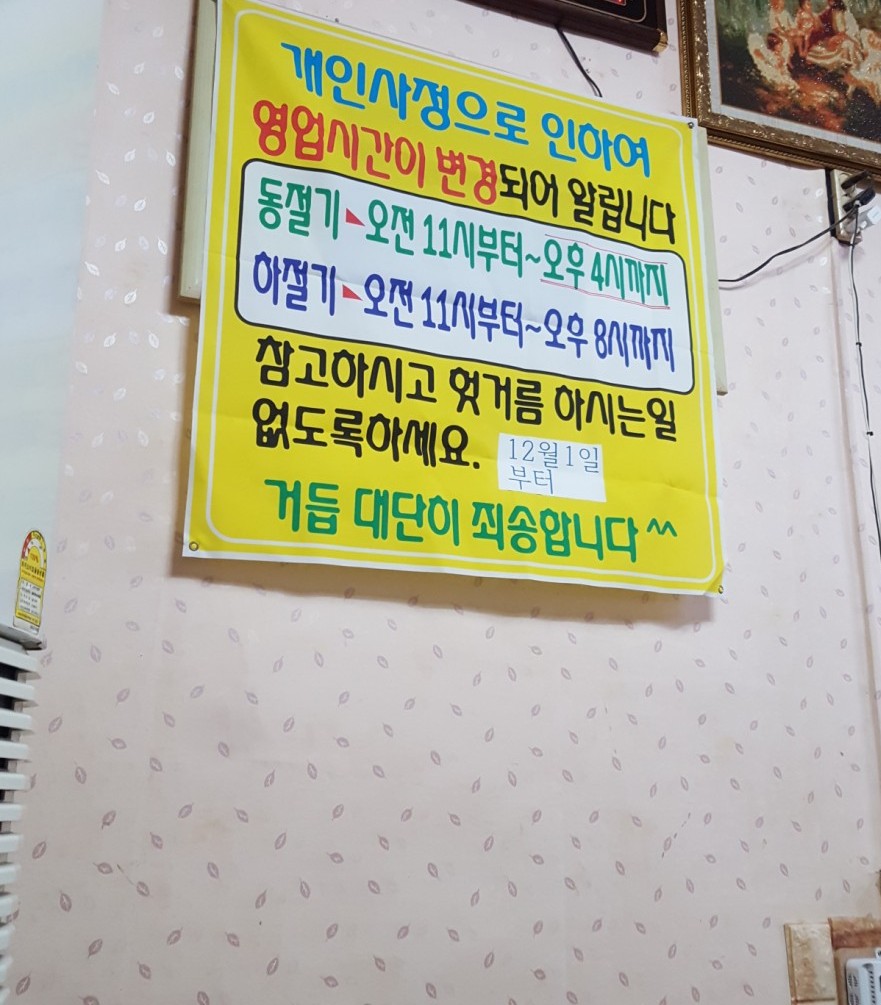 개인사정으로 인하여
영업시간이 변경되어 알립니다
동절기▶오전 11시부터~오후 4시까지
하절기▶오전 11시부터~오후 8시까지
참고하시고 헛거름 하시는일
없도록하세요.
12월1일
부터
거듭 대단히 죄송합니다^^